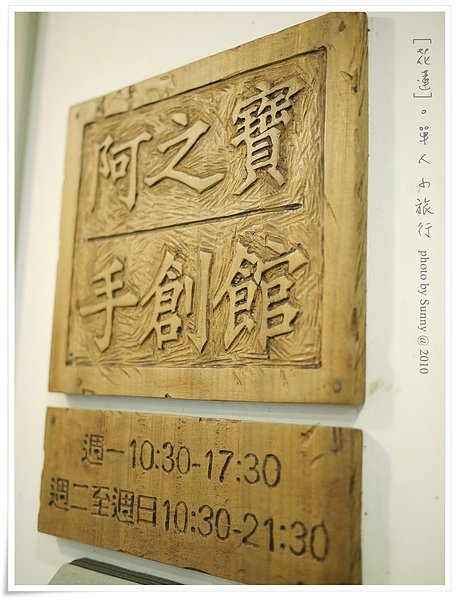 阿之寶
手創館
週一10:30-17:30
週二至週日10:30-21:30
[花蓮]。單人小旅行 photo by Sunny @ 2010